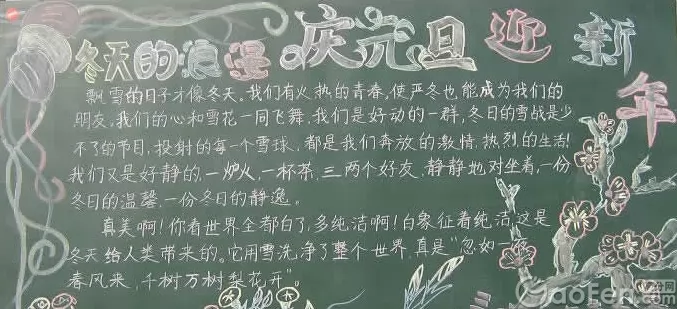 冬天的浪漫 庆元旦迎新年
飘雪的日子才像冬天。我们有火热的青春,使严冬也能成为我们的
朋友。我们的心和雪花一同飞舞,我们是好动的一群,冬日的雪战是少
不了的节目,投射的每一个雪球,都是我们奔放的激情,热烈的生活!
我们又是好静的,一炉火,一杯茶,三两个好友,静静地对坐着,一份
冬日的温馨,一份冬日的静逸。
真美啊!你看世界全都白了,多纯洁啊!白象征着纯洁,这是
冬天给人类带来的。它用雪洗净了整个世界,真是“忽如一夜
春风来,千树万树梨花开”。
GaoFen.com